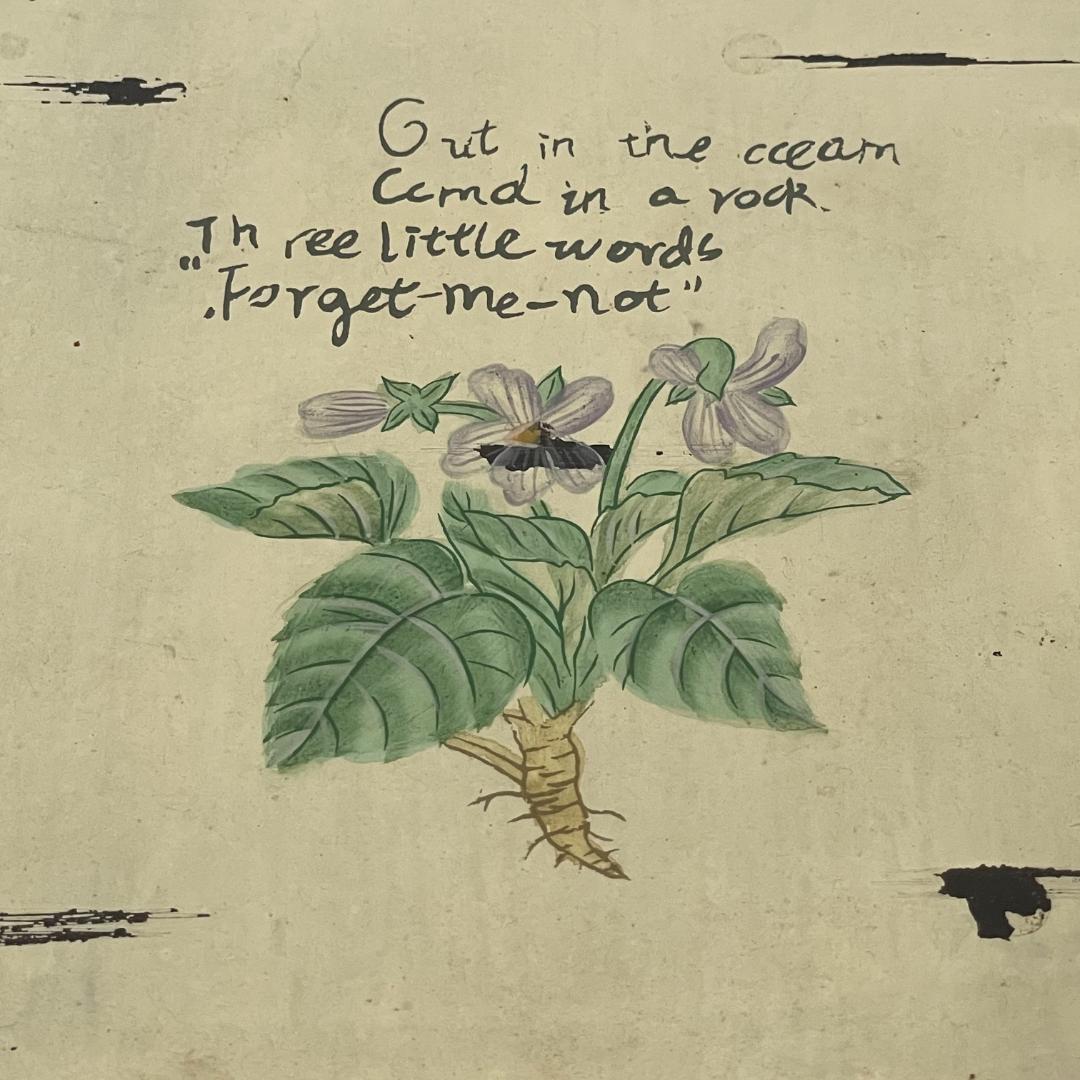 Out in the ocean
Carved in a rock.
Three little words
"Forget-me-not"